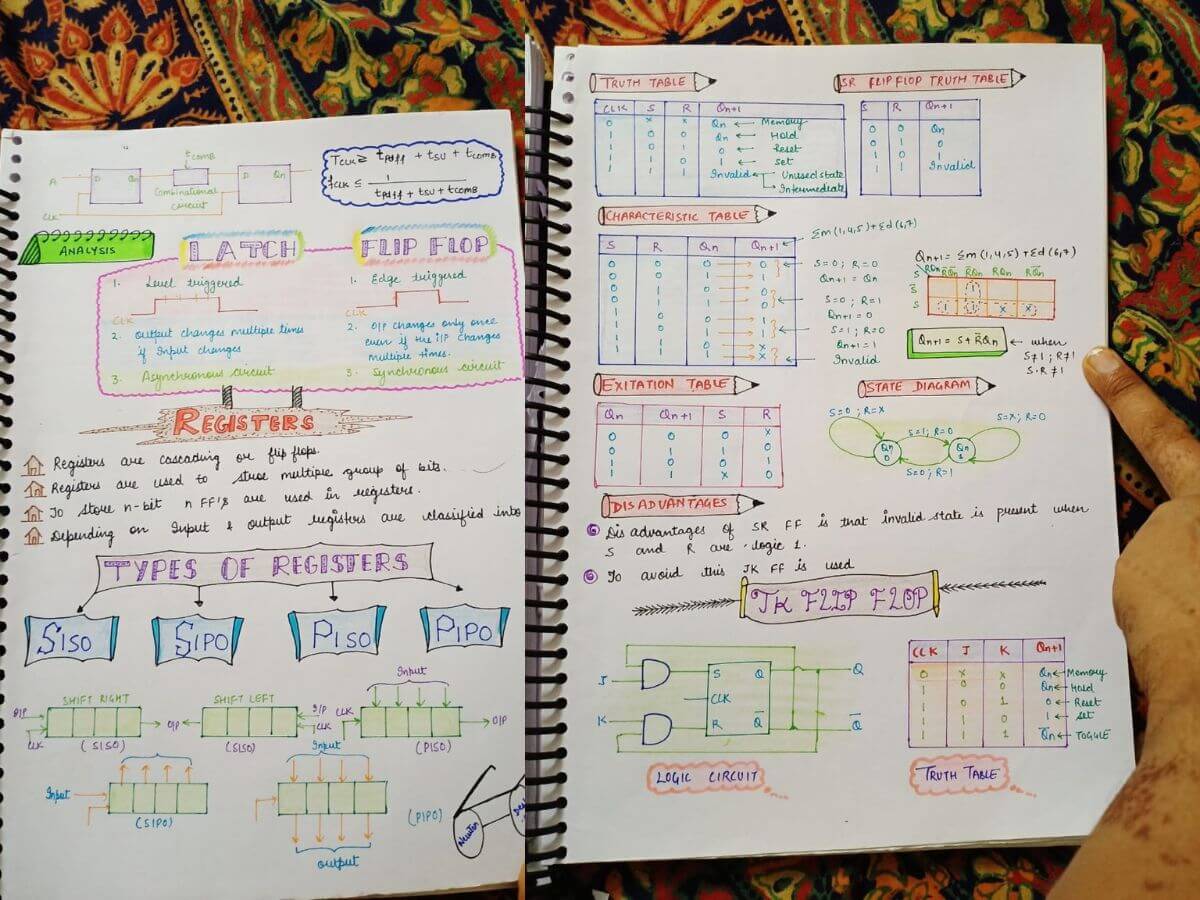 tcomb
A
D
Qn
D
Qn
combinational
circuit
CLK
Tclk ≥ tpdff + tsu + tcomb
fclk ≤ 1
tpdff + tsu + tcomb
ANALYSIS
LATCH
FLIP FLOP
1. Level triggered
CLK
2. Output changes multiple times
if Input changes
3. Asynchronous circuit
1. Edge triggered
CLK
2. O/P changes only once
even if the i/P changes
multiple times.
3. Synchronous circuit
REGISTERS
Registers are cascading or flip flops.
Registers are used to stroe multiple group of bits.
To store n-bit n FF'S are used in registers.
Depending on Input & output registers are classified into
TYPES OF REGISTERS
SISO
SIPO
PISO
PIPO
SHIFT RIGHT
CLK
O/P
(SISO)
SHIFT LEFT
CLK
(SISO)
Input
CLK
O/P
(PISO)
Input
(SIPO)
Input
output
(PIPO)
Newton
TRUTH TABLE
CLK S R Qn+1
0 x x Qn ← Memory
1 0 0 Qn ← Hold
1 0 1 0 ← Reset
1 1 0 1 ← Set
1 1 1 Invalid ← Unused state
Intermediate
SR FLIP FLOP TRUTH TABLE
S R Qn+1
0 0 Qn
0 1 0
1 0 1
1 1 Invalid
CHARACTERISTIC TABLE
S R Qn Qn+1
0 0 0 → 0
0 0 1 → 1
0 1 0 → 0
0 1 1 → 0
1 0 0 → 1
1 0 1 → 1
1 1 0 → x
1 1 1 → x
Σm(1,4,5)+Σd(6,7)
S=0 ; R=0
Qn+1 = Qn
S=0 ; R=1
Qn+1 = 0
S=1 ; R=0
Qn+1 = 1
Invalid
Qn+1 = Σm(1,4,5)+Σd(6,7)
S RQn R̄Q̄n R̄Qn RQn RQ̄n
S̄ 1
S 1 1 x x
Qn+1 = S+R̄Qn ← when
S≠1 ; R≠1
S·R≠1
EXITATION TABLE
Qn Qn+1 S R
0 0 0 x
0 1 1 0
1 0 0 1
1 1 x 0
STATE DIAGRAM
S=0 ; R=x
S=1 ; R=0
S=x ; R=0
Qn
0
Qn
1
S=0 ; R=1
DISADVANTAGES
Dis advantages of SR FF is that invalid state is present when
S and R are logic 1.
To avoid this JK FF is used
JK FLIP FLOP
J
K
S Q
CLK
R Q̄
Q
Q̄
LOGIC CIRCUIT
CLK J K Qn+1
0 x x Qn ← Memory
1 0 0 Qn ← Hold
1 0 1 0 ← Reset
1 1 0 1 ← Set
1 1 1 Q̄n ← TOGGLE
TRUTH TABLE